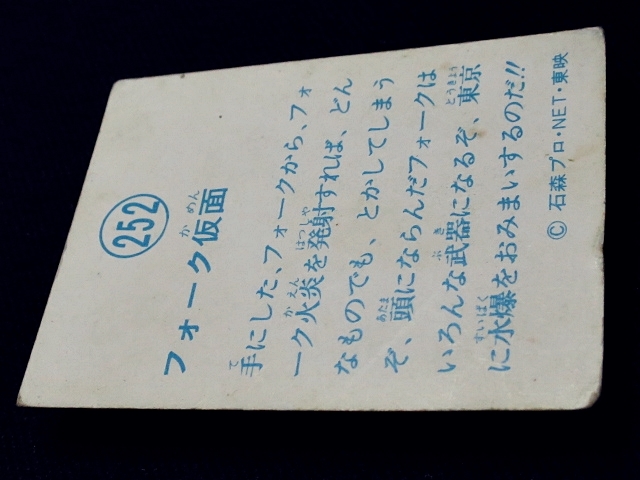 252
フォーク仮面
手にした、フォークから、フォ
ーク火炎を発射すれば、どん
なものでも、とかしてしまう
ぞ、頭にならんだフォークは
いろんな武器になるぞ、東京
に水爆をおみまいするのだ!!
© 石森プロ・NET・東映